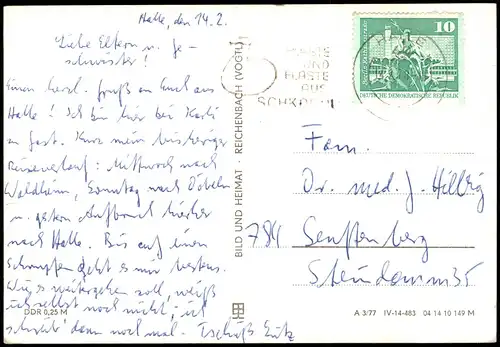 Halle, den 14.2.
Liebe Eltern u. Ge-
schwister!
Einen herzl. Gruß an Euch aus
Halle! Ich bin hier bei Karli
zu Gast. Kurz mein bisheriger
Reiseverlauf: Mittwoch nach
Waldheim, Sonntag nach Döbeln
u. gestern Aufbruch hierher
nach Halle. Bis auf einen
Schnupfen geht es mir bestens.
Wie es weitergehen soll, weiß
ich selbst noch nicht; ich
schreib' dann noch mal. Tschüß
BILD UND HEIMAT · REICHENBACH (VOGTL)
DDR 0,25 M
10
DEUTSCHE DEMOKRATISCHE REPUBLIK
UND
AUS
Fam.
Dr. med. J. Hillig
784 Senftenberg
Steindamm 35
A 3/77 IV-14-483 04 14 10 149 M